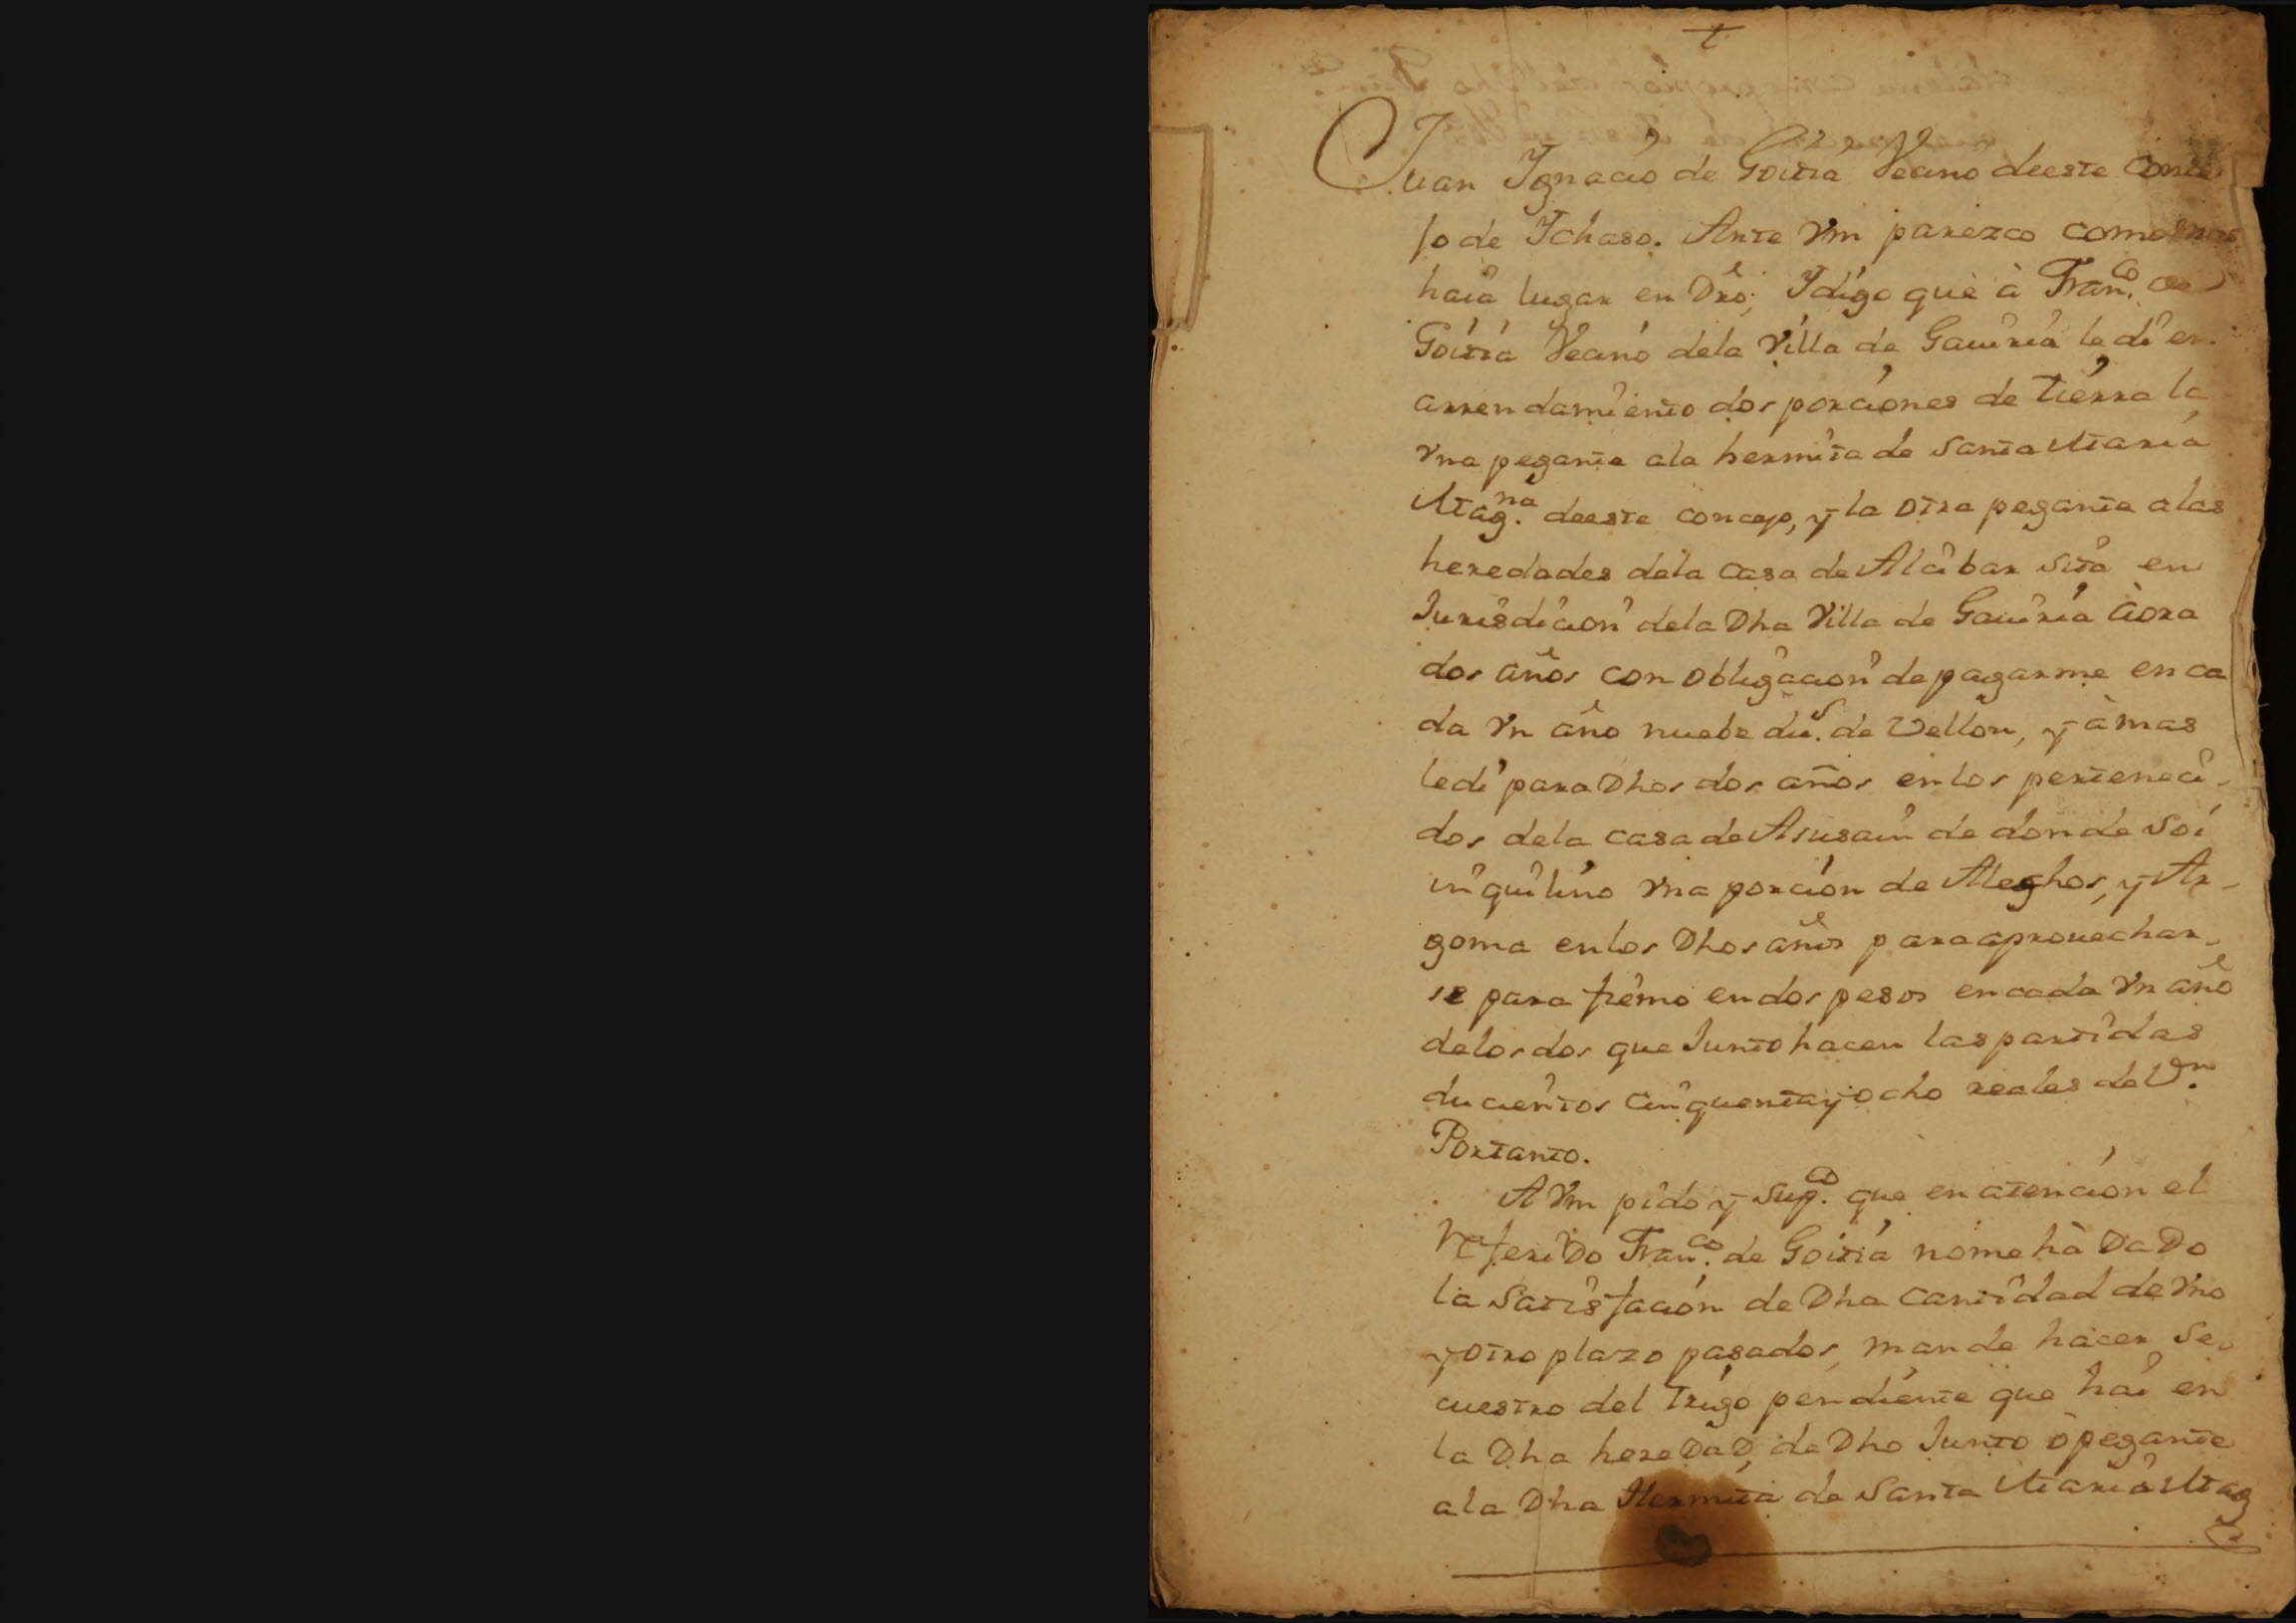 Juan Ygnacio de Goitia Vecino deeste Conce
jo de Ychaso. Ante Vm parezco como mas
haia lugar en Dro; Y digo que à Fran.co de
Goitia Vecino dela Villa de Gaviria le di en
arrendamiento dos porciones de tierra la
Vna pegante ala hermita de Santa Maria
Mag.na deeste concejo, y la otra pegante alas
heredades dela casa de Alcibar sita en
Jurisdicion dela Dha Villa de Gaviria àora
dos años con obligacion de pagarme en ca
da Vn año nuebe du.s de Vellon, y àmas
ledi para Dhos dos años enlos perteneci-
dos dela casa de Asusain de donde soi
inquilino Vna porcion de Aleghos, y Ar-
goma enlos Dhos años para aprouechar-
se para fiemo en dos pesos encada Vn año
delos dos que Junto hacen las partidas
ducientos cinquenta y ocho reales de V.n
Portanto.
A Vm pido y sup.co que en atencion el
Referido Fran.co de Goitia nome hà Dado
la Satisfacion de Dha cantidad de Vno
y otro plazo pasados, mande hacer Se-
cuestro del Trigo pendiente que hai en
la Dha hereDaD, de Dho Junto ò pegante
ala Dha Hermita de Santa Maria Mag